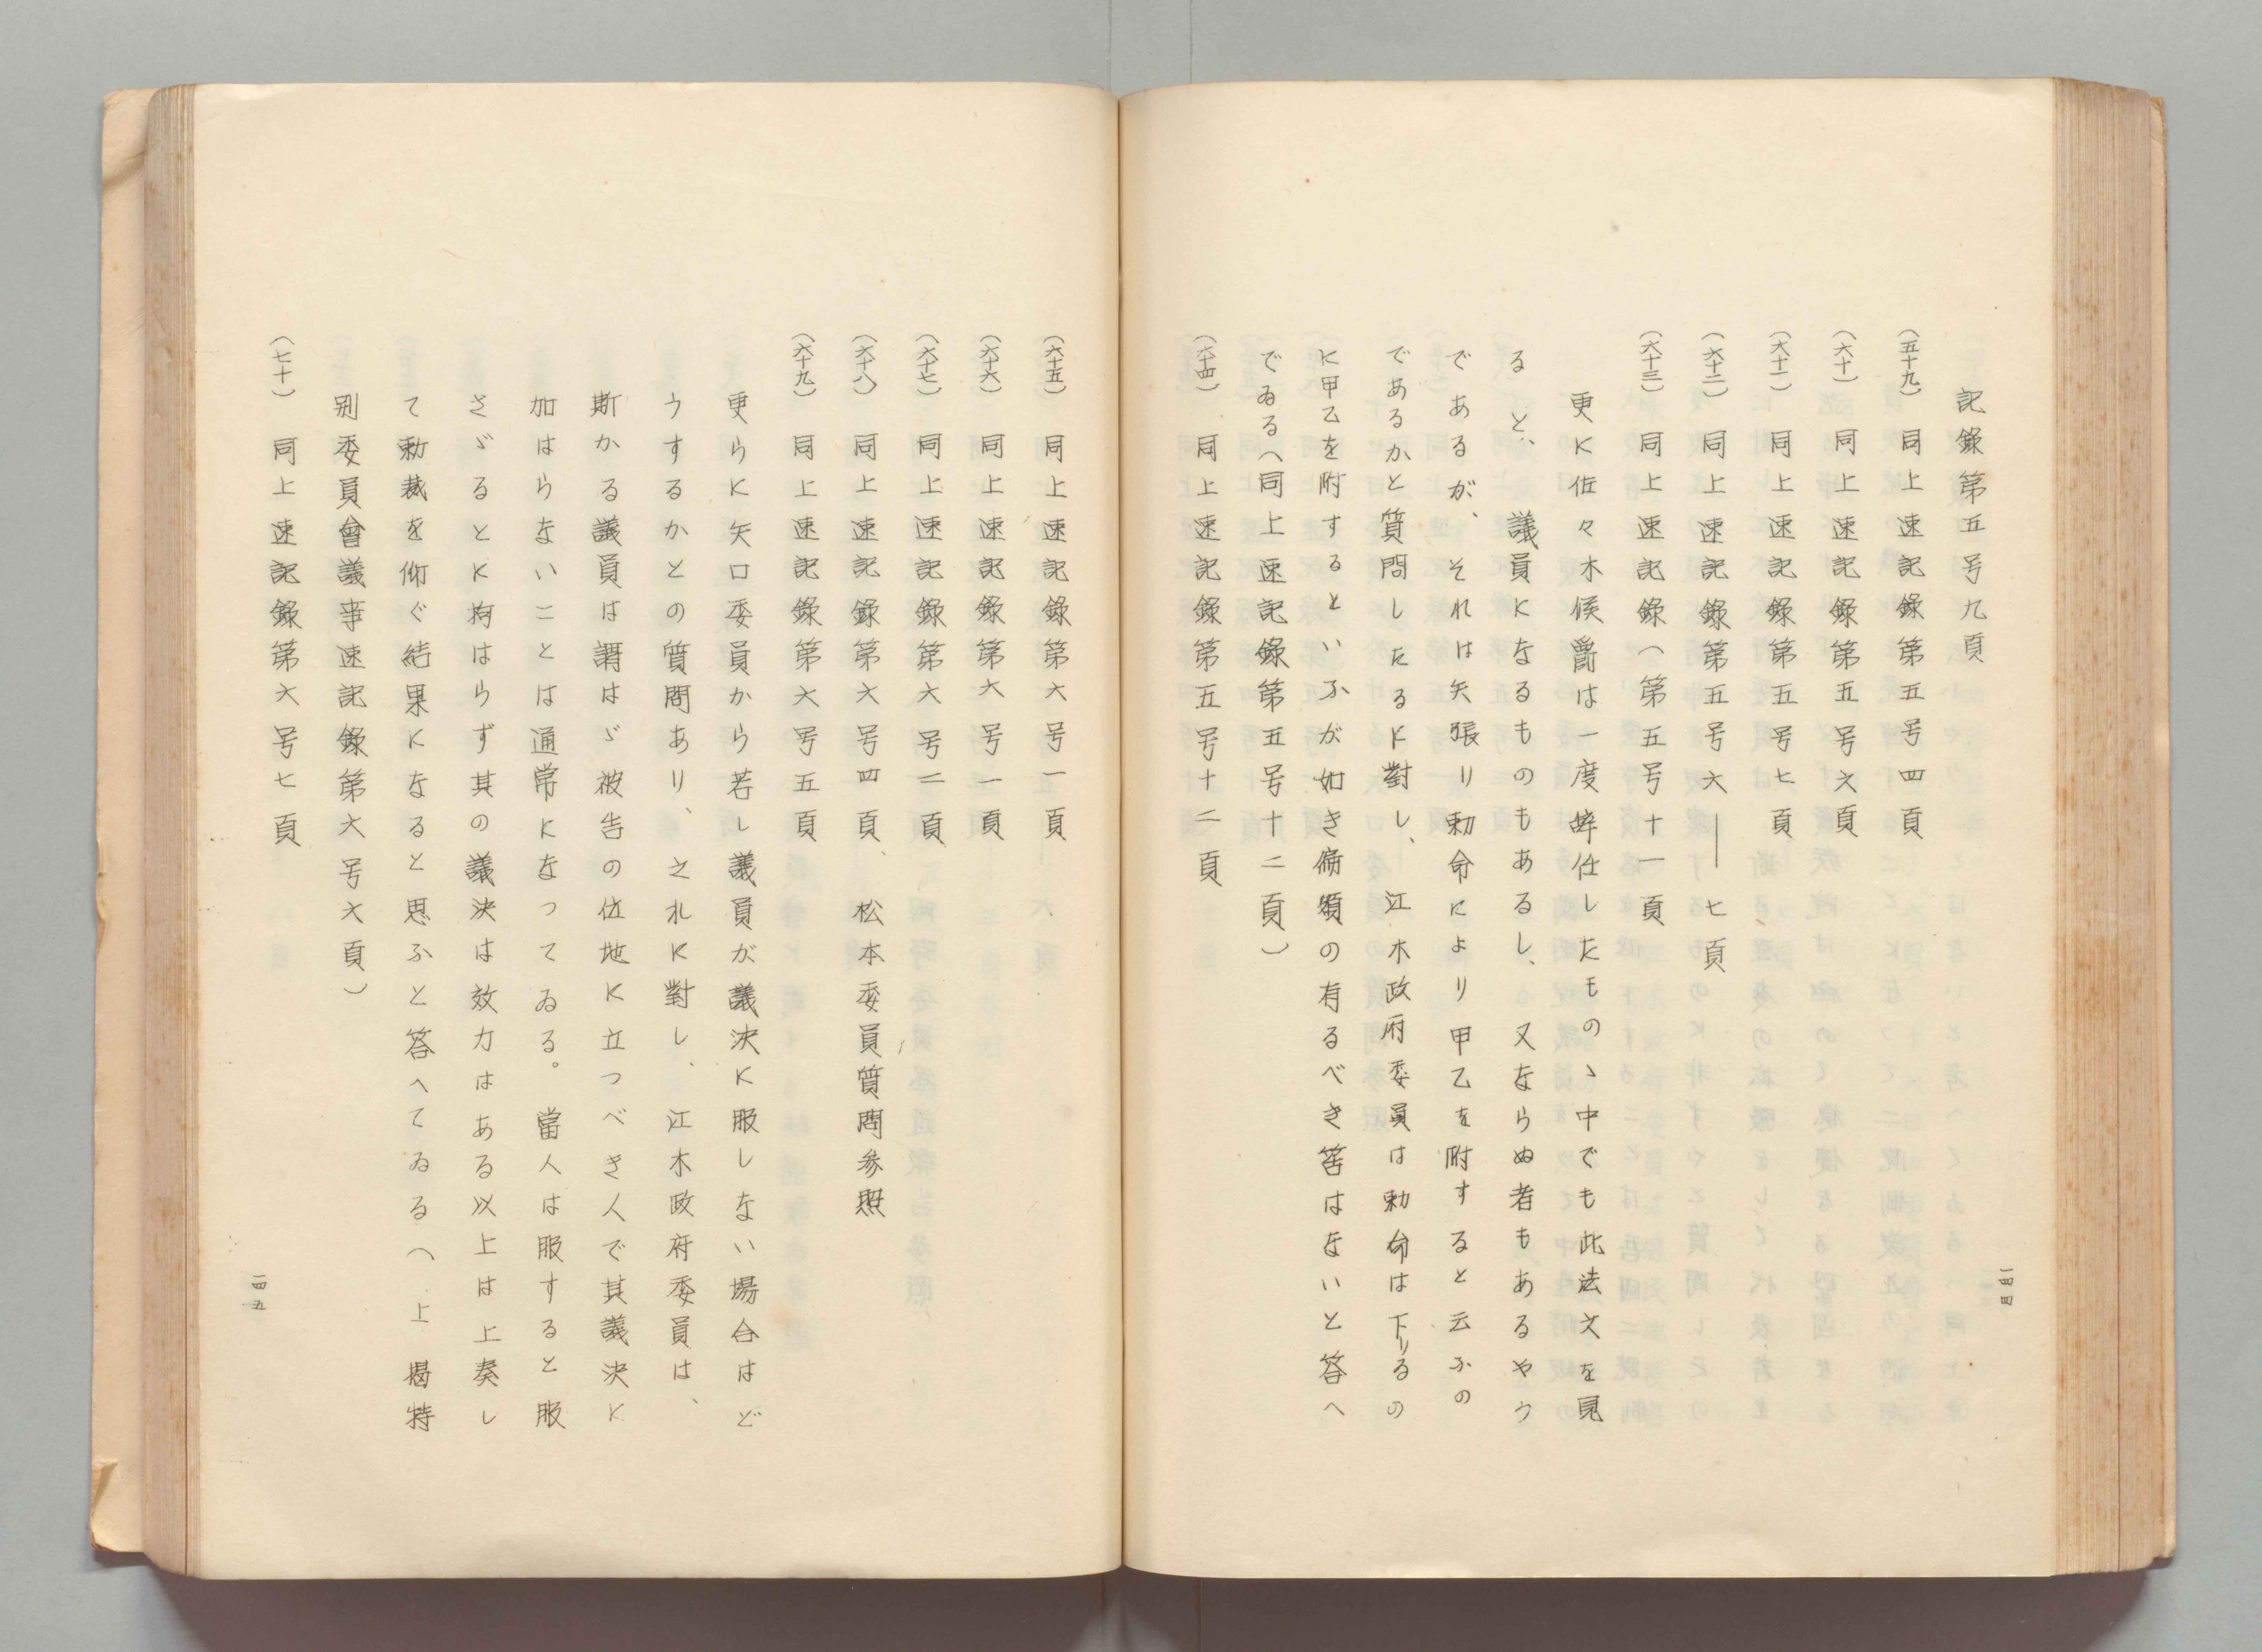 記錄第五号九頁
(五十九) 同上速記錄第五号四頁
(六十) 同上速記錄第五号六頁
(六十一) 同上速記錄第五号七頁
(六十二) 同上速記錄第五号六――七頁
(六十三) 同上速記錄(第五号十一頁
更に佐々木侯爵は一度辞任したものゝ中でも此法文を見
ると、議員になるものもあるし、又ならぬ者もあるやう
であるが、それは矢張り勅命により甲乙を附すると云ふの
であるかと質問したるに對し、江木政府委員は勅命は下りるの
に甲乙を附するといふが如き偏頗の有るべき筈はないと答へ
でゐる(同上速記錄第五号十二頁)
(六十四) 同上速記錄第五号十二頁
一四四
(六十五) 同上速記錄第六号一頁
(六十六) 同上速記錄第六号一頁
(六十七) 同上速記錄第六号二頁
(六十八) 同上速記錄第六号四頁、松本委員質問参照
(六十九) 同上速記錄第六号五頁
更らに矢口委員から若し議員が議決に服しない場合はど
うするかとの質問あり、之れに對し、江木政府委員は、
斯かる議員は謂はゞ被告の位地に立つべき人で其議決に
加はらないことは通常になつてゐる。當人は服すると服
さゞるとに拘はらず其の議決は效力はある以上は上奏し
て勅裁を仰ぐ結果になると思ふと答へてゐる(上揭特
別委員會議事速記錄第六号六頁)
(七十) 同上速記錄第六号七頁
一四五